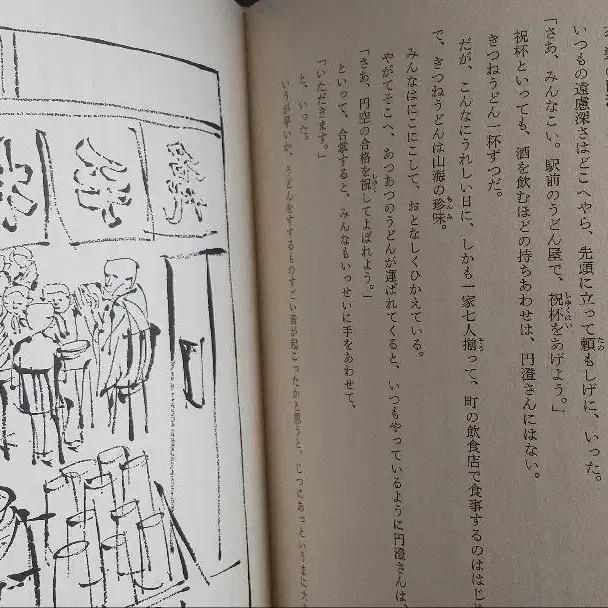 いつもの遠慮深さはどこへやら、先頭に立って頼もしげに、いった。
「さあ、みんなこい。駅前のうどん屋で、祝杯をあげよう。」
祝杯といっても、酒を飲むほどの持ちあわせは、円澄さんにはない。
きつねうどん一杯ずつだ。
だが、こんなにうれしい日に、しかも一家七人揃って、町の飲食店で食事するのははじ
で、きつねうどんは山海の珍味。
みんなはにこにこして、おとなしくひかえている。
やがてそこへ、あつあつのうどんが運ばれてくると、いつもやっているように円澄さんは、
「さあ、円空の合格を祝してよばれよう。」
といって、合掌すると、みんなもいっせいに手をあわせて、
「いただきます。」
と、いった。
いうが早いか、うどんをすするものすごい音が起こったかと思うと、じつにあっというまに大